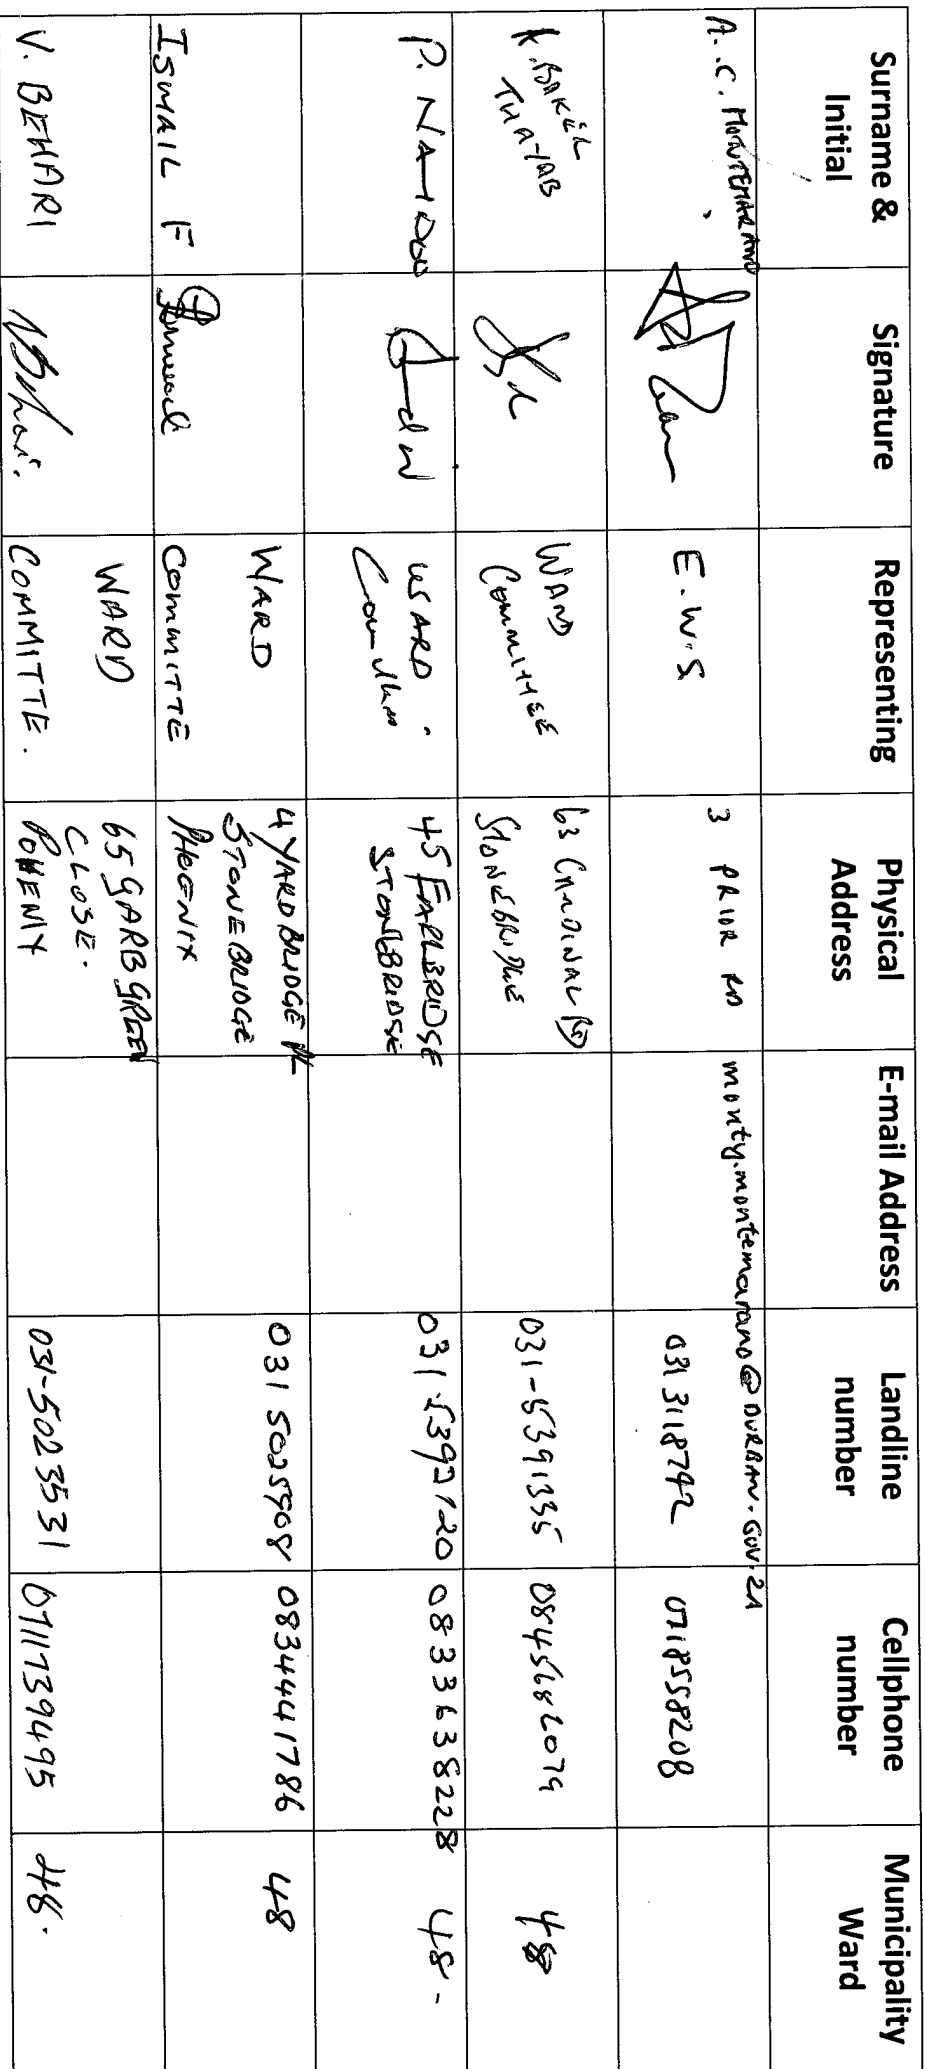 Surname & Initial
Signature
Representing
Physical Address
E-mail Address
Landline number
Cellphone number
Municipality Ward
A.C. MONTEMARANO
E.W.S
3 PRIOR RD
monty.montemarano@DURBAN.GOV.ZA
031 3118742
0718558208
THAYAB
WARD
COMMITTEE
63 CARDINAL RD
STONEBRIDGE
031-5391335
0845682079
48
P. NAIDOO
WARD
45 EARLBRIDGE
STONEBRIDGE
031 5392120
0833638228
48-
ISMAIL F
WARD
COMMITTE
4 YARDBRIDGE PL
STONEBRIDGE
PHOENIX
031 5025908
0834441786
48
V. BEHARI
WARD
COMMITTE.
65 GARBGREEN
CLOSE.
031-5023531
0711739495
48.